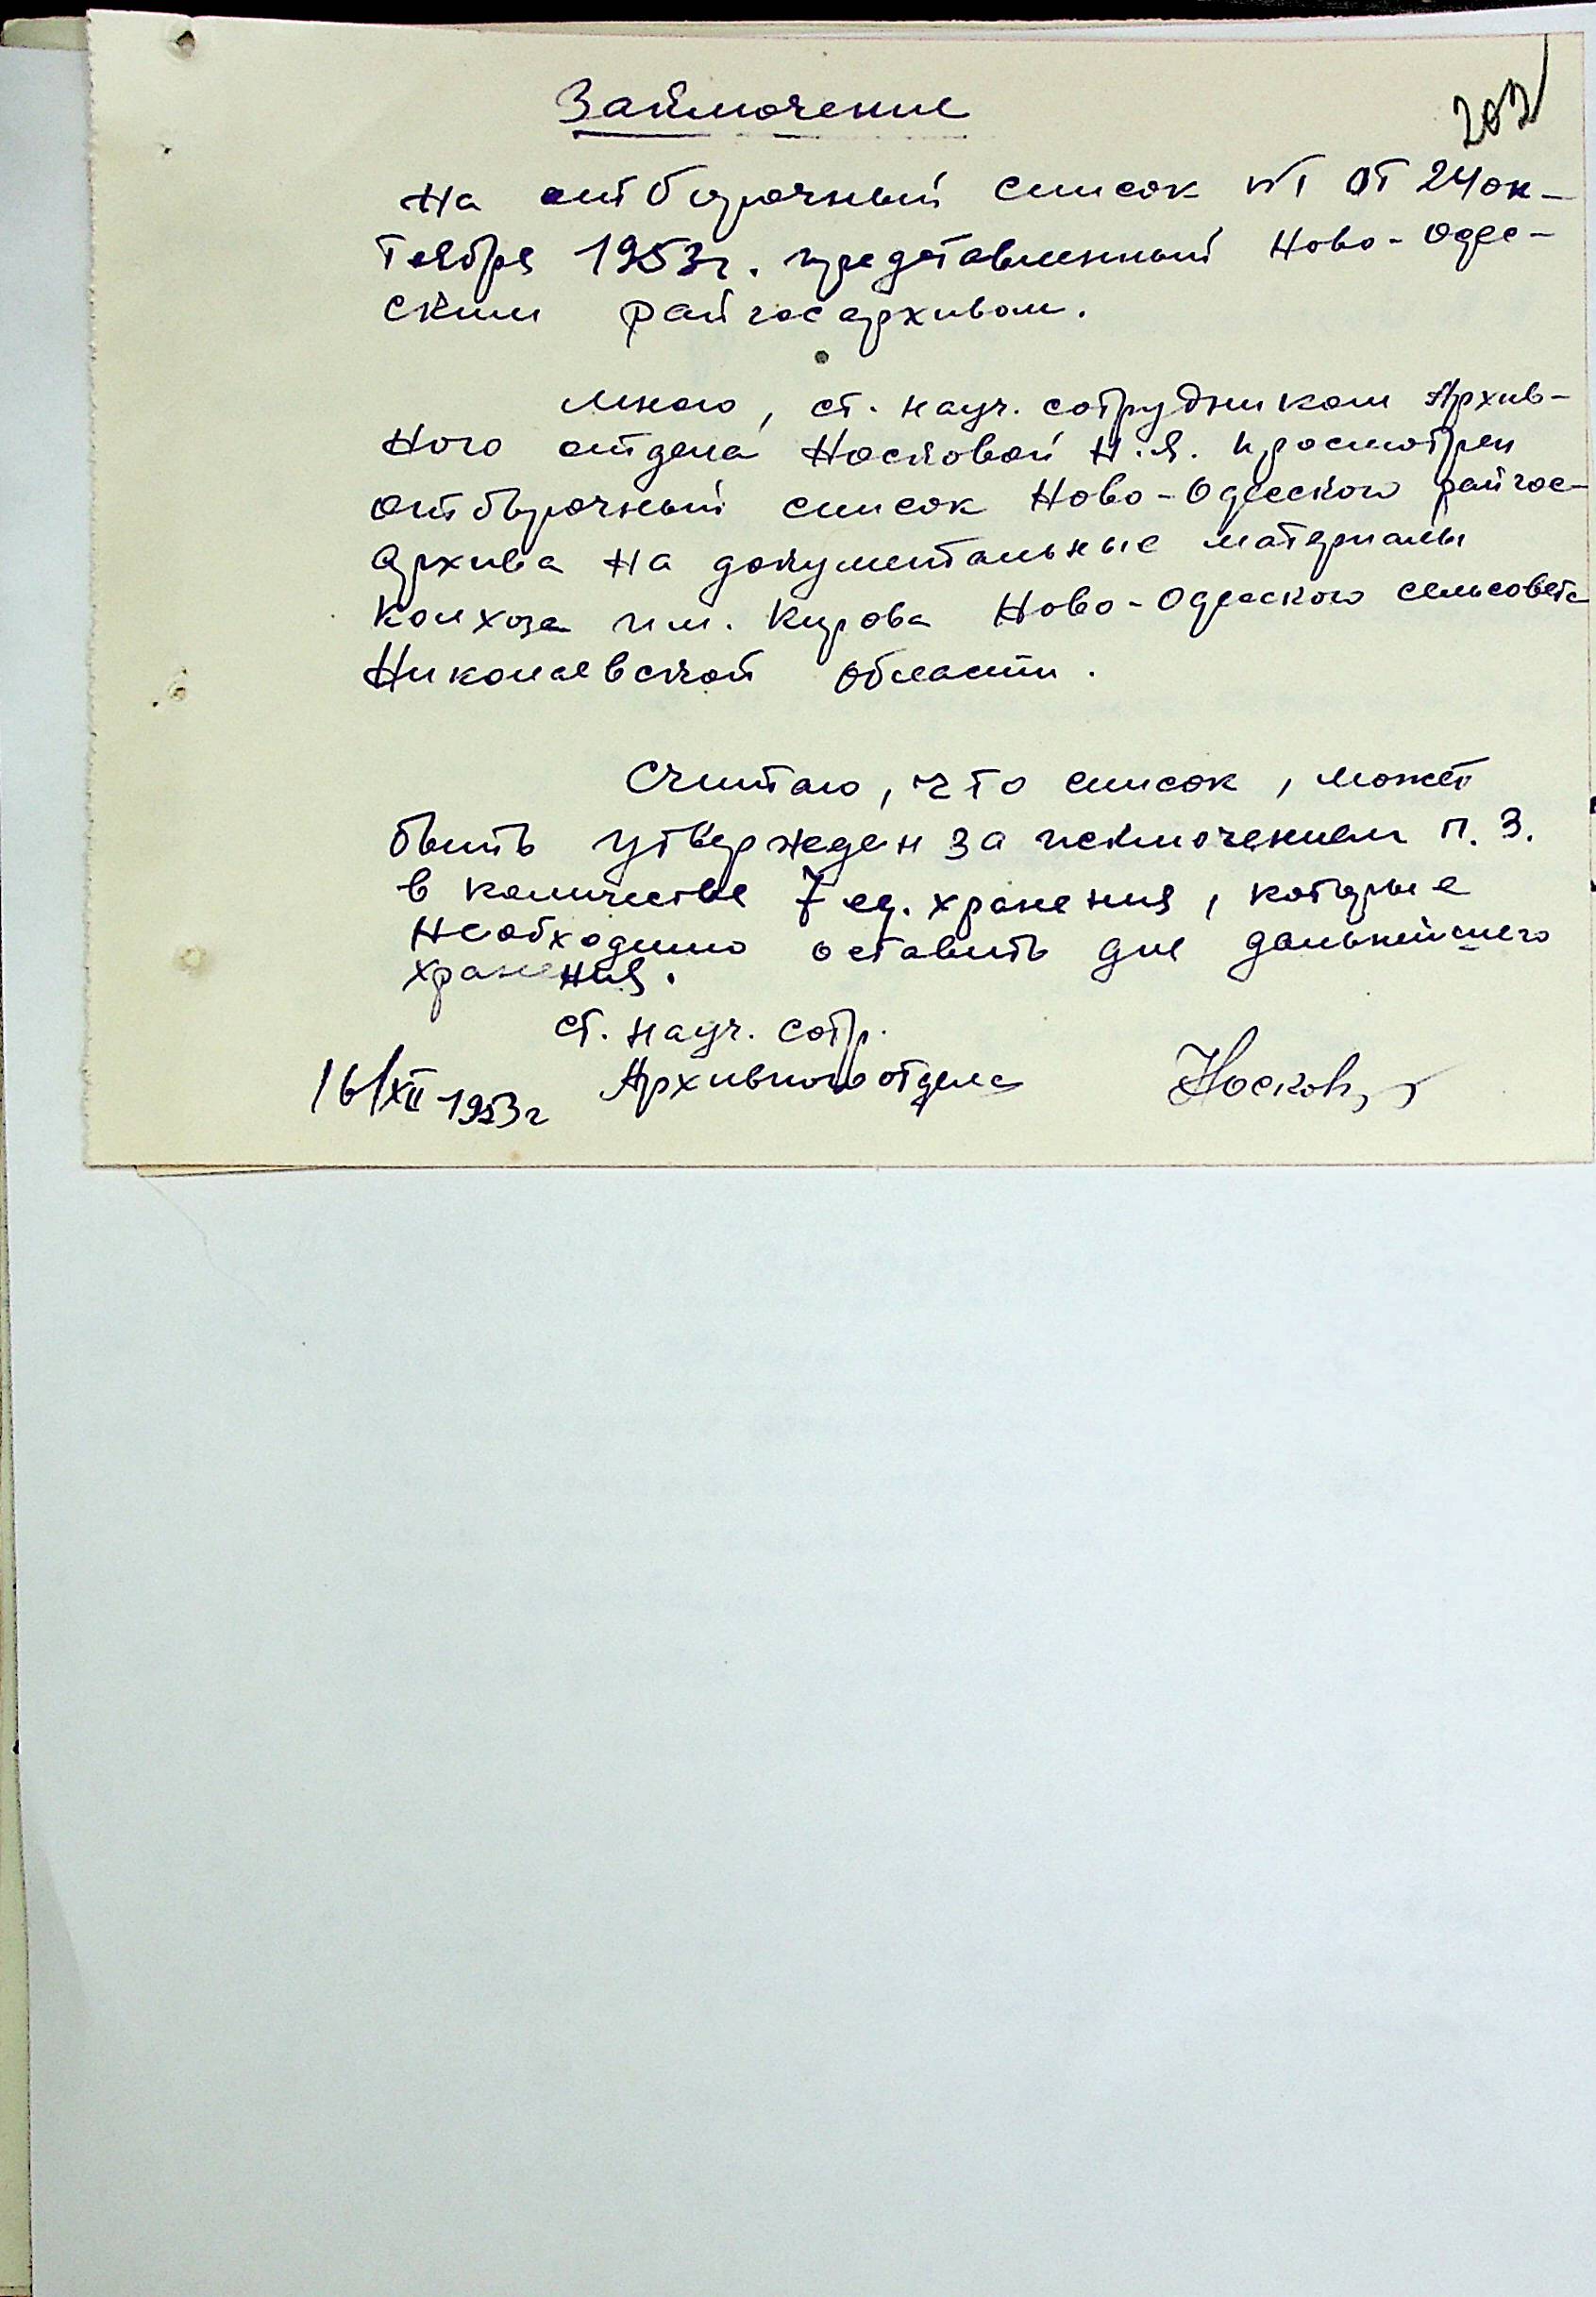 203
Заключение
На отборочный список №1 от 24 ок-
тября 1953г. представленный Ново-Одес-
ским райгосархивом.
Мною, ст. науч. сотрудником Архив-
ного отдела Носковой Н.Я. просмотрен
отборочный список Ново-Одесского райгос-
архива на документальные материалы
колхоза им. Кирова Ново-Одесского сельсовета
Николаевской области.
Считаю, что список, может
быть утвержден за исключением п. 3.
в количестве 7 ед. хранения, которые
необходимо оставить для дальнейшего
хранения.
ст. науч. сотр.
16/XII-1953г Архивного отдела Носкова